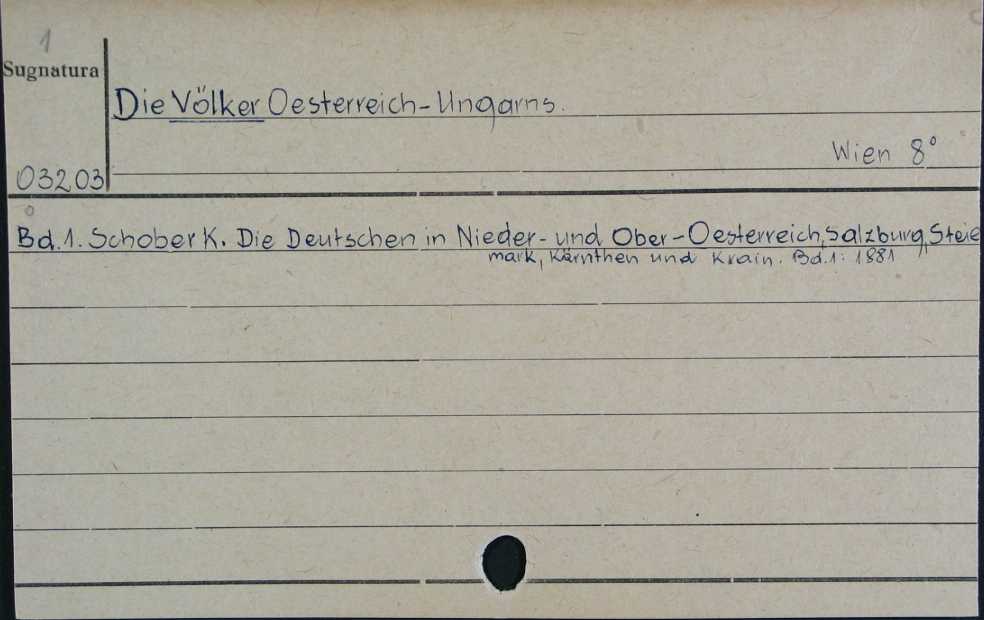 1
Sugnatura
Die Völker Oesterreich-Ungarns.
Wien 8°
03203
Bd.1. Schober K. Die Deutschen in Nieder- und Ober-Oesterreich, Salzburg, Steie
mark, Kärnthen und Krain. Bd.1: 1881